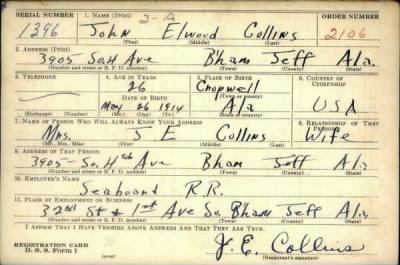 SERIAL NUMBER 1. NAME (Print) 3-A ORDER NUMBER
1396 John Elwood Collins 2106
(First) (Middle) (Last)
2. ADDRESS (Print)
3905 So. H Ave B'ham Jeff Ala.
(Number and street or R. F. D. number) (Town) (County) (State)
3. TELEPHONE 4. AGE IN YEARS 5. PLACE OF BIRTH 6. COUNTRY OF CITIZENSHIP
26 Cropwell
DATE OF BIRTH (Town or county)
May 26 1914 Ala USA
(Exchange) (No.) (Mo.) (Day) (Yr.) (State or country)
7. NAME OF PERSON WHO WILL ALWAYS KNOW YOUR ADDRESS 8. RELATIONSHIP OF THAT PERSON
Mrs. J E Collins Wife
(Mr., Mrs., Miss) (First) (Middle) (Last)
9. ADDRESS OF THAT PERSON
3905 - So. H Ave B'ham Jeff Ala
(Number and street or R. F. D. number) (Town) (County) (State)
10. EMPLOYER'S NAME
Seaboard R.R.
11. PLACE OF EMPLOYMENT OR BUSINESS
32nd St & 1st Ave So, B'ham Jeff Ala,
(Number and street or R. F. D. number) (Town) (County) (State)
I AFFIRM THAT I HAVE VERIFIED ABOVE ANSWERS AND THAT THEY ARE TRUE.
REGISTRATION CARD
D. S. S. Form 1 (over) J. E. Collins
(Registrant's signature)